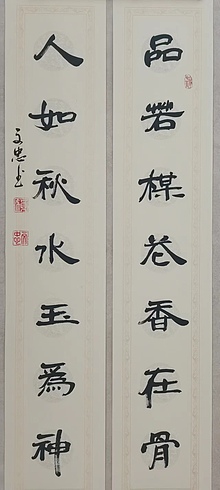 品若楳花香在骨
人如秋水玉爲神
文忠书